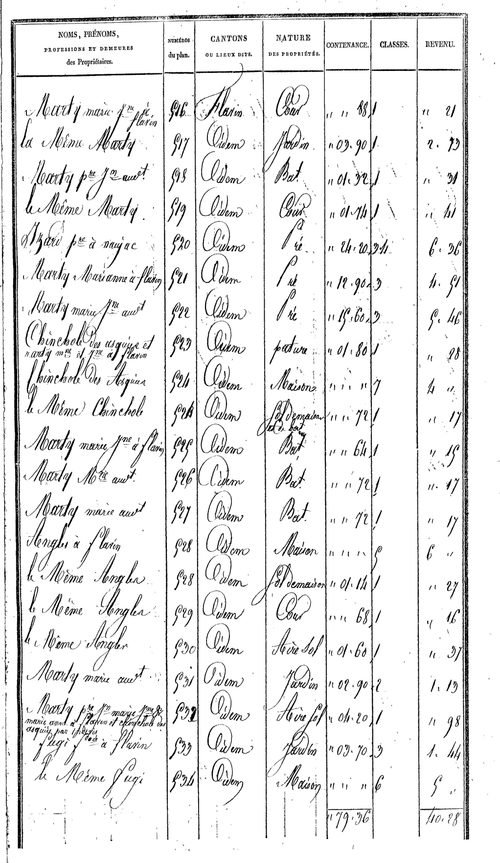 NOMS, PRÉNOMS, PROFESSIONS ET DEMEURES des Propriétaires. | NUMÉROS du plan. | CANTONS OU LIEUX DITS. | NATURE DES PROPRIÉTÉS. | CONTENANCE. | CLASSES. | REVENU.
Marty marie jne à flavin 516 Flavin Cour " " 88 1 " 21
la Même Marty 517 Idem Jardin " 03.90 1 2.93
Marty pre Jn aut 518 Idem Bat " 01.32 1 " 31
le Même Marty 519 Idem Cour " 01.74 1 " 41
pre à nayac 520 Idem Pré " 24.20 3.4 6.36
Marty Marianne à flavin 521 Idem Pré " 12.90 3 4.51
Marty marie jne aut 522 Idem Pré " 15.60 3 5.46
Chinchole des asquies et
marty mes et jne à flavin 523 Idem pature " 01.80 1 " 28
Chinchole des Asquies 524 Idem Maison " " " 7 4 "
le Même Chinchole 524 Idem Sol de maison " " 72 1 " 17
Marty marie jne à flavin 525 Idem Bat " " 64 1 " 15
Marty aut 526 Idem Bat " " 72 1 " 17
Marty marie aut 527 Idem Bat " " 72 1 " 17
Anglès à flavin 528 Idem Maison " " " 5 6 "
le Même Anglès 528 Idem Sol de maison " 01.14 1 " 27
le Même Anglès 529 Idem Cour " " 68 1 " 16
le Même Anglès 530 Idem Aire Sol " 01.60 1 " 37
Marty marie aut 531 Idem Jardin " 02.90 2 1.13
Marty pre Jn marie jne
marie aut à flavin et chinchole des
asquies par indivis 532 Idem Aire Sol " 04.20 1 " 98
fugi à flavin 533 Idem Jardin " 03.70 3 1.44
le Même fugi 534 Idem Maison " " " 6 5 "
" 79.36 40.28